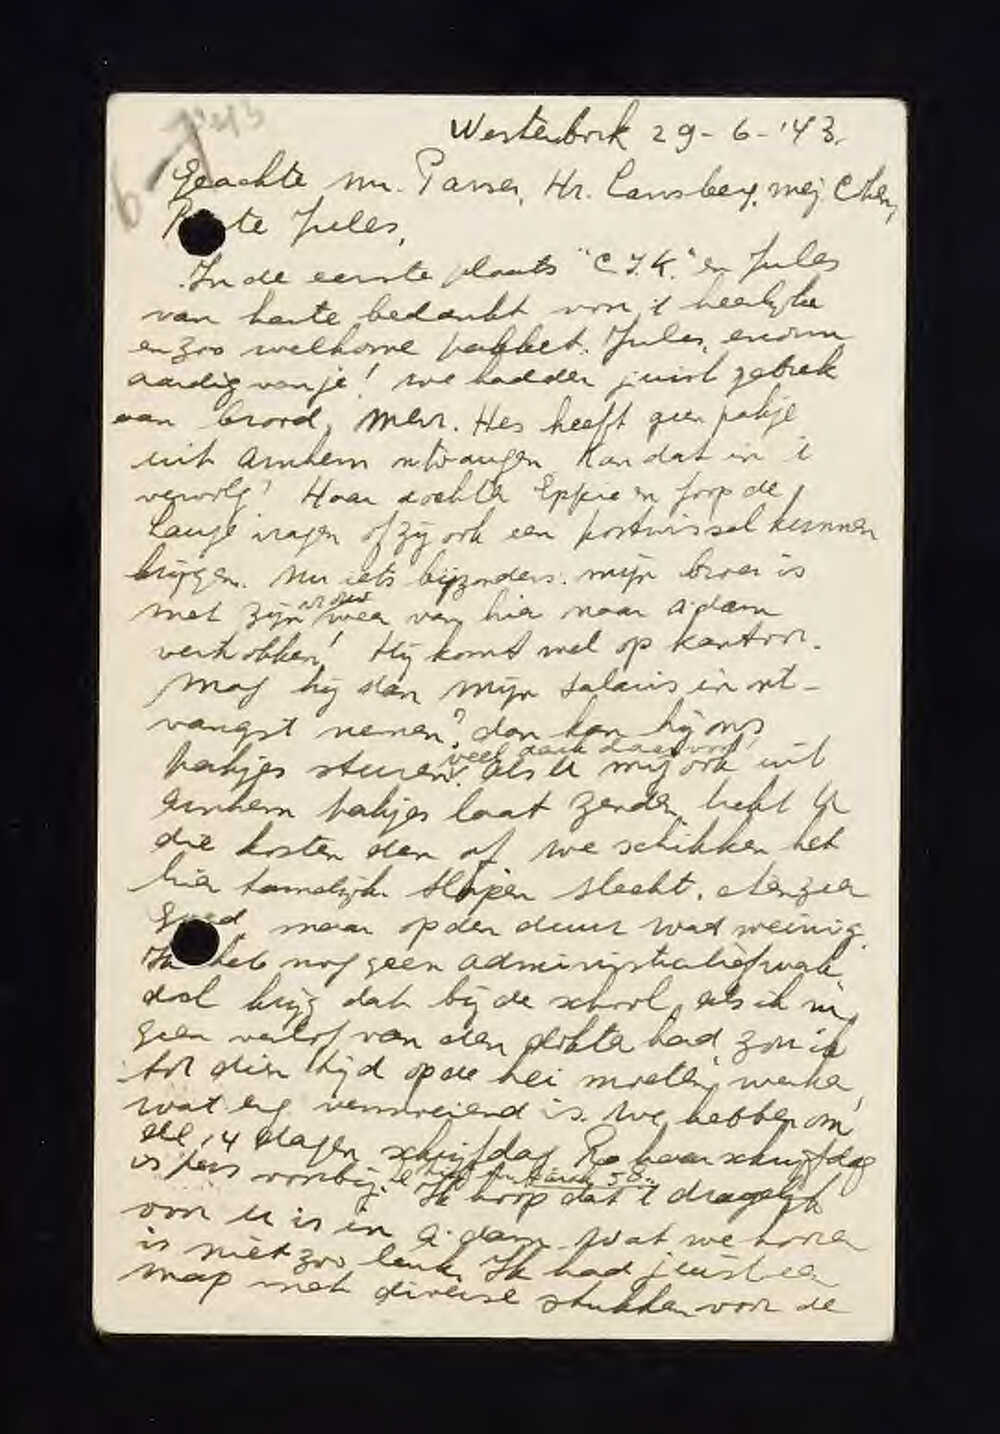 Westerbork 29-6-'43.
Geachte Mr. Parser, Hr. Cansberg, mej Cohen,
te Jules,
In de eerste plaats "C.I.K." en Jules
van harte bedankt voor 't heerlijke
en zoo welkome pakket. Jules, enorm
aardig van je! We hadden juist gebrek
aan brood, Mevr. Hes heeft geen pakje
uit Arnhem ontvangen. Kan dat in 't
vervolg? Haar dochter Eppie en Joop de
Lange vragen of zij ook een postwissel kunnen
krijgen. Nu iets bijzonders. Mijn broer is
met zijn vrouw weer van hier naar A'dam
vertrokken! Hij komt wel op kantoor.
Mag hij dan mijn salaris in ont-
vangst nemen? dan kan hij ons
veel dank daarvoor!
pakjes sturen. Als U mij ook uit
Arnhem pakjes laat zenden, trekt U
die kosten er af. We schikken het
hier tamelijk. Slapen slecht. Eten zeer
Goed maar op den duur wat weinig.
Ik heb nog geen administratiefwerk
doch krijg dat bij de school, als ik nu
geen verlof van den dokter had zou ik
tot dien tijd op de hei moeten werken,
wat erg vermoeiend is. We hebben om
de 14 dagen schrijfdag. Ro haar schrijfdag
is pas voorbij. Ik hoop dat 't dragelijk
voor U is in A'dam. Wat we horen
is niet zoo leuk. Ik had juist een
map met diverse stukken voor de